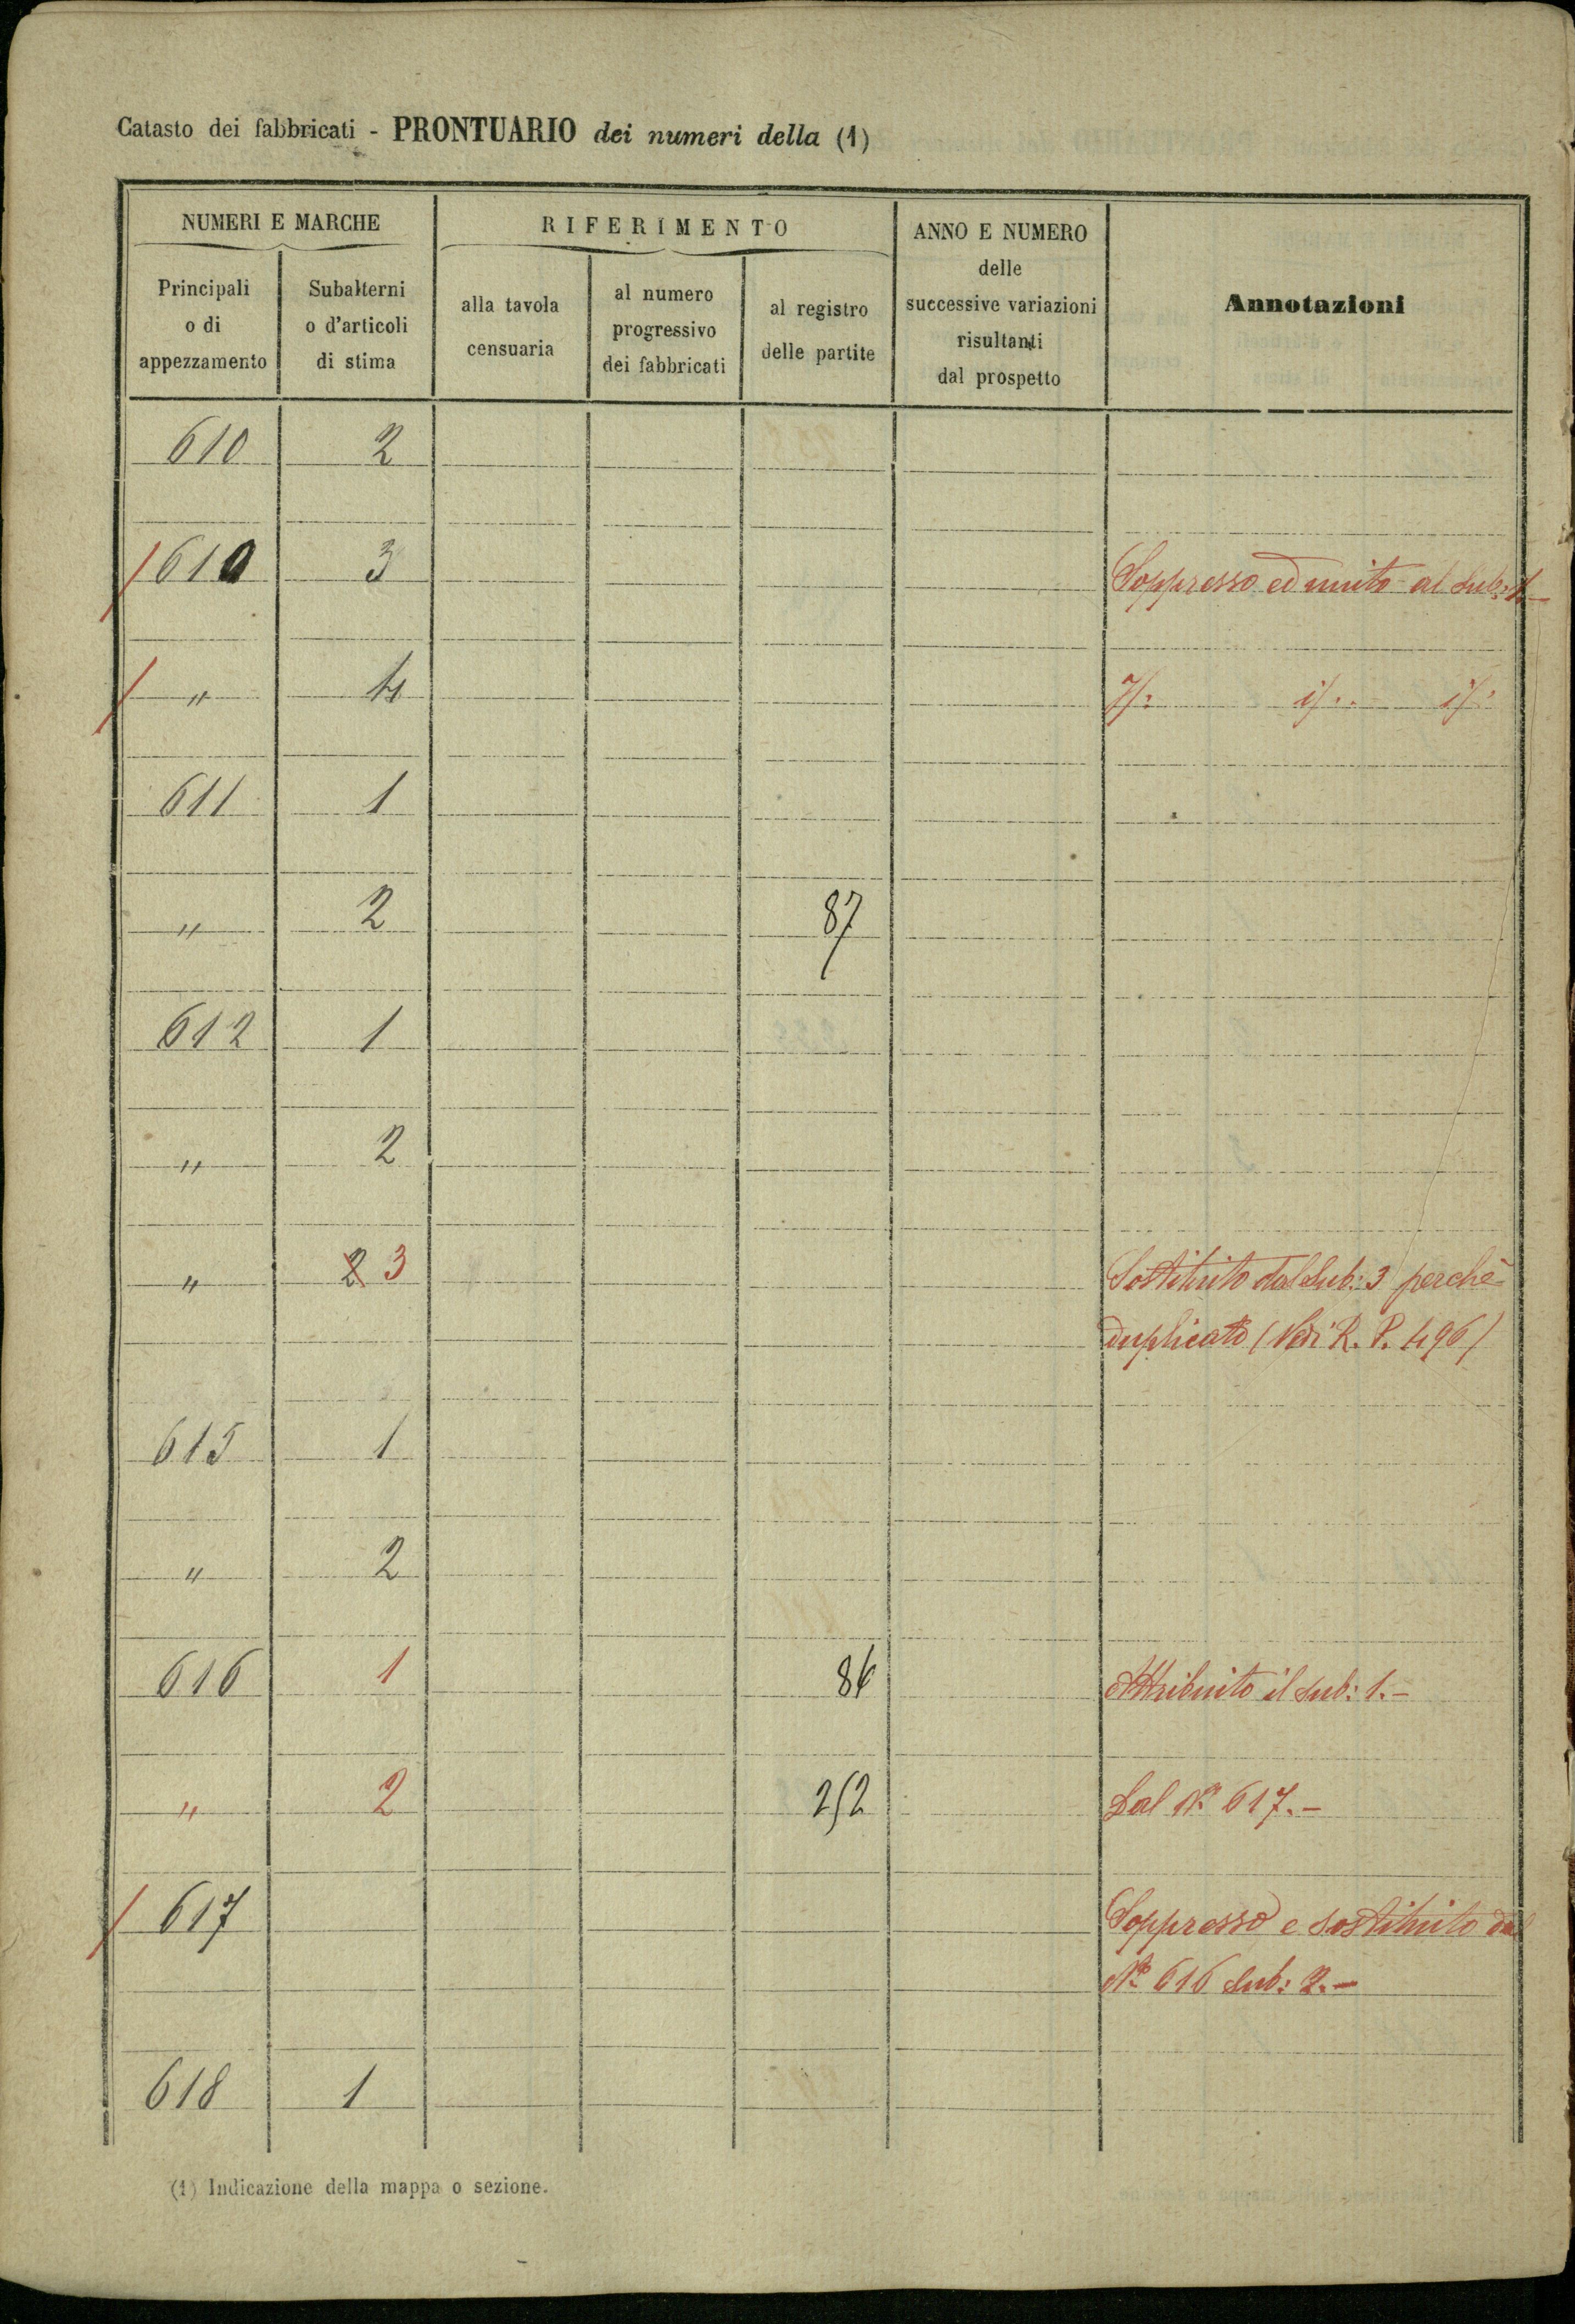 Catasto dei fabbricati - PRONTUARIO dei numeri della (1)
NUMERI E MARCHE
RIFERIMENTO
ANNO E NUMERO
delle
successive variazioni
risultanti
dal prospetto
Annotazioni
Principali
o di
appezzamento
Subalterni
o d'articoli
di stima
alla tavola
censuaria
al numero
progressivo
dei fabbricati
al registro
delle partite
610 2
/ 610 3 Soppresso ed unito al Sub: 1.-
/ " 4 I/: i/: i/:
611 1
" 2 87
612 1
" 2
" 2 3 Sostituito dal Sub: 3 perchè
duplicato (Vedi R. P. 496)
615 1
" 2
616 1 86 Attribuito il sub: 1.-
" 2 252 Dal N° 617.-
/ 617 Soppresso e sostituito dal
N° 616 Sub: 2.-
618 1
(1) Indicazione della mappa o sezione.